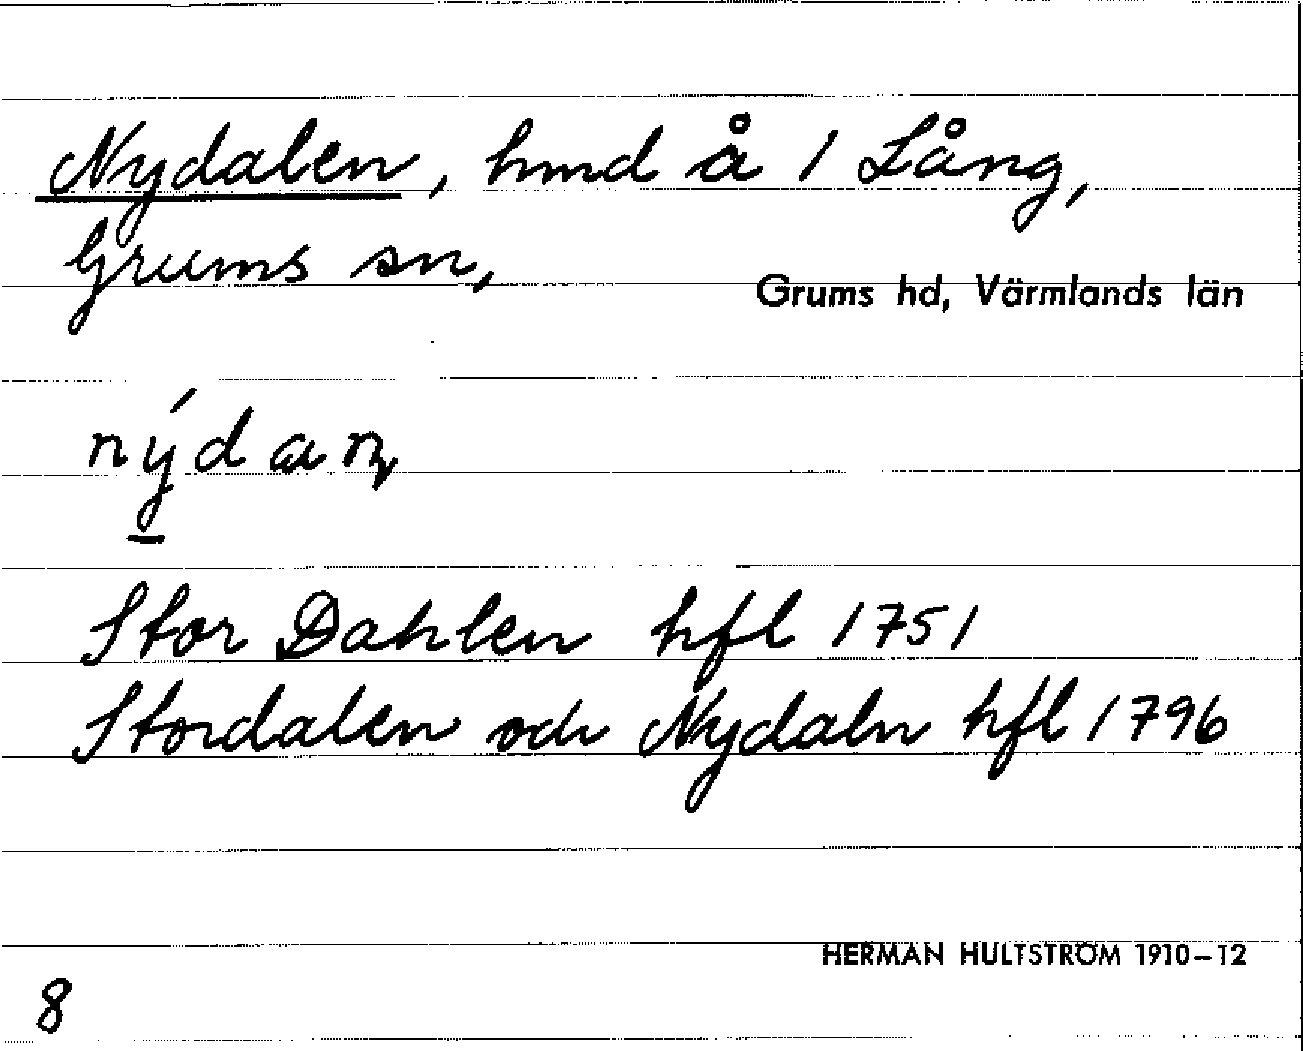 Nydalen, hmd å 1 Lång,
Grums sn,
Grums hd, Värmlands län
Stor Dahlen hfl 1751
Stordalen och Nydaln hfl 1796
HERMAN HULTSTRÖM 1910–12
8